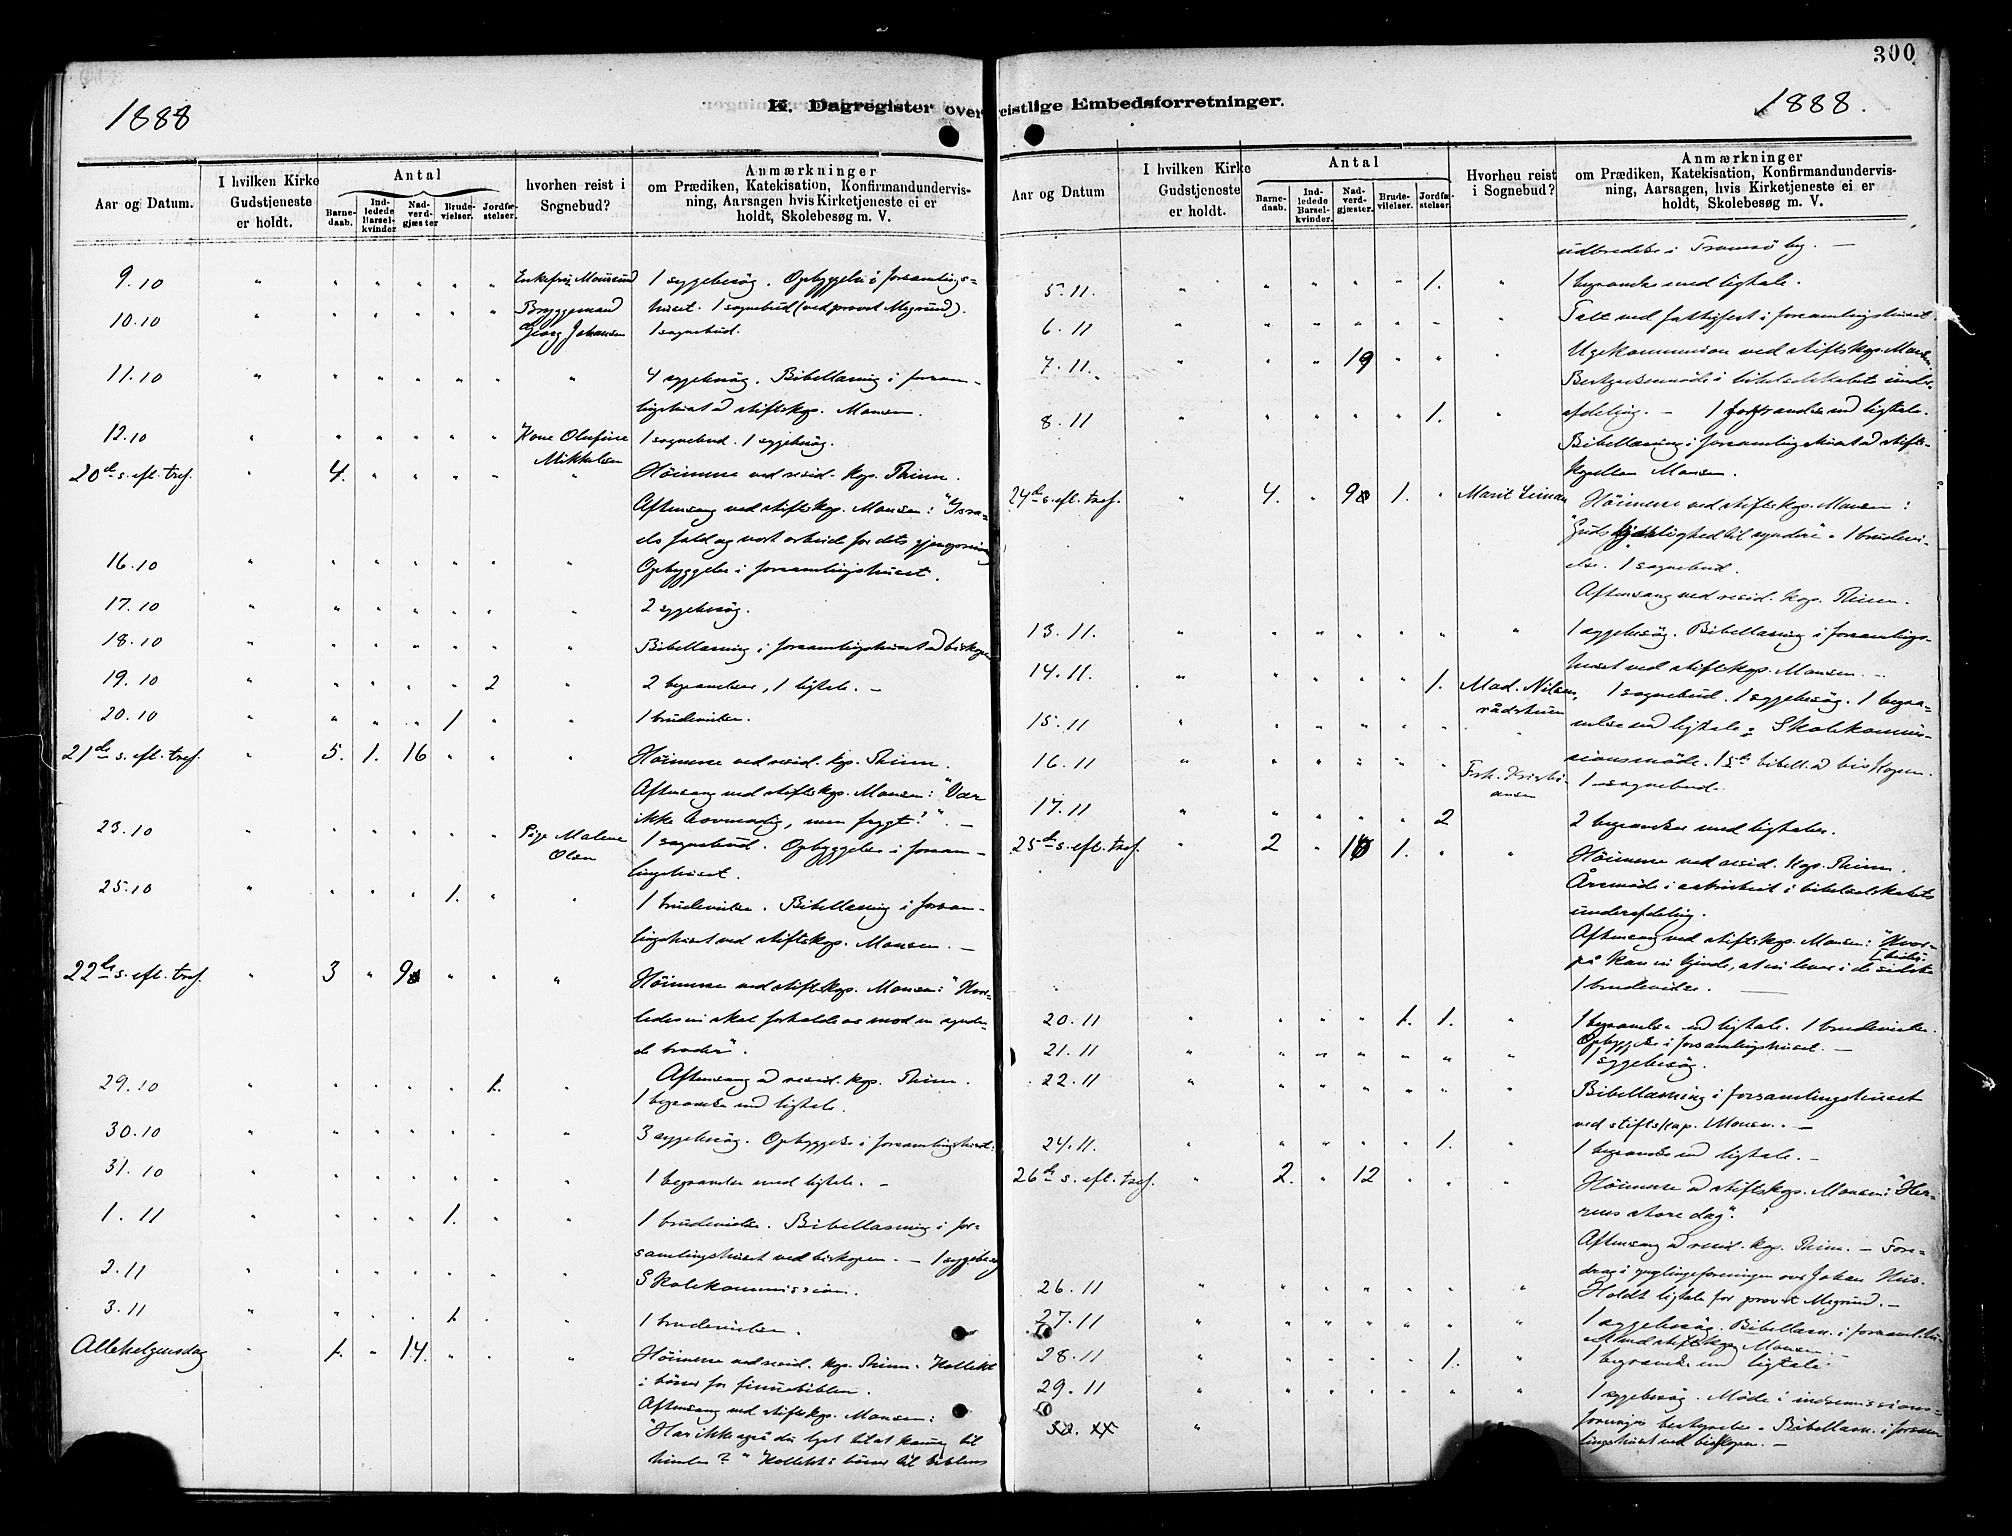 300
1888
K. Dagregister over
geistlige Embedsforretninger.
1888.
Aar og Datum.
I hvilken Kirke Gudstjeneste er holdt.
Antal
Barnedaab.
Indledede Barselkvinder
Nadverdgjæster
Brudevielser.
Jordfæstelser.
hvorhen reist i Sognebud?
Anmærkninger
om Prædiken, Katekisation, Konfirmandundervisning, Aarsagen hvis Kirketjeneste ei er holdt, Skolebesøg m. V.
9.10 Enkefru Mousund 1 sygebesøg. Opbyggelse i forsamlings-
10.10 Bryggemand huset. 1 sognebud (ved provst Megrund).
Georg Johansen 1 sognebud.
11.10 4 sygebesøg. Bibellæsning i forsam-
lingshuset ved stiftskap. Mansen.
12.10 Kone Olufine 1 sognebud. 1 sygebesøg.
Mikkelsen
20de s. eft. tref. 4. Høimesse ved resid. kap. Thinn.
Aftensang ved stiftskap. Mansen: "Isra-
els fald og vort arbeide for dets gjenoprisning
16.10 Opbyggelse i forsamlingshuset.
17.10 2 sygebesøg.
18.10 Bibellæsning i forsamlingshuset ved biskopen
19.10 2 2 begravelser, 1 ligtale. –
20.10 1 1 brudevielse.
21de s. eft. tref. 5. 1. 16 Høimesse ved resid. kap. Thinn.
Aftensang ved stiftskap. Mansen: "Vær
ikke hovmodig, men frygt!". –
23.10 Pige Malene 1 sognebud. Opbyggelse i forsam-
Olsen lingshuset.
25.10 1. 1 brudevielse. Bibellæsning i forsam-
lingshuset ved stiftskap. Mansen. –
22de s. eft. tref. 3 Høimesse ved stiftskap. Mansen: "Hvor-
ledes vi skal forholde os mod en synden-
de broder".
Aftensang ved resid. kap. Thinn.
29.10 1. 1 begravelse med ligtale.
30.10 3 sygebesøg. Opbyggelse i forsamlingshuset.
31.10 1 begravelse med ligtale. –
1.11 1. 1 brudevielse. Bibellæsning i for-
samlingshuset ved biskopen. – 1 sygebesøg
2.11 Skolekommission.
3.11 1 1 brudevielse.
Allehelgensdag 1. 14. Høimesse ved resid. kap. Thinn. Kollekt
i bøsser for finnebiblen.
Aftensang ved stiftskap. Mansen:
"Har ikke også du lyst til at komme til
himlen?" Kollekt i bøsser til biblens
Aar og Datum
I hvilken Kirke Gudstjeneste er holdt.
Antal
Barnedaab.
Indledede Barselkvinder
Nadverdgjæster.
Brudevielser.
Jordfæstelser.
Hvorhen reist i Sognebud?
Anmærkninger
om Prædiken, Katekisation, Konfirmandundervisning, Aarsagen, hvis Kirketjeneste ei er holdt, Skolebesøg m. V.
udbredelse i Tromsø by. –
5.11. 1. 1 begravelse med ligtale.
6.11 Tale ved fattigfest i forsamlingshuset.
7.11. 19 Ugekommunion ved stiftskap. Mansen
Bestyrelsesmøde i bibelselskabets under-
8.11 1. afdeling. – 1 med ligtale.
Bibellæsning i forsamlingshuset ved stifts-
kapellan Mansen.
24de s. eft. tref. 4. 1. Marit Høimesse ved stiftskap. Mansen:
"Guds kjærlighed til syndere". 1 brudevi-
else. 1 sognebud.
Aftensang ved resid. kap. Thinn.
13.11. 1 sygebesøg. Bibellæsning i forsamlings-
huset ved stiftskap. Mansen. –
14.11. 1. Mad. Nilsen, 1 sognebud. 1 sygebesøg. 1 begra-
15.11 rådstuen velse med ligtale. Skolekommis-
16.11 sionsmøde. Bibell. ved biskopen.
1 sognebud.
17.11 2 2 begravelser med ligtaler.
25de s. eft. tref. 2 1. Høimesse ved resid. kap. Thinn.
Årsmøde i bibelselskabets
underafdeling.
Aftensang ved stiftskap. Mansen: "Hvor-
på kan vi kjende, at vi lever i de sidste [tider
1 brudevielse. –
20.11 1. 1. 1 begravelse med ligtale. 1 brudevielse.
Opbyggelse i forsamlingshuset. –
21.11 1 sygebesøg.
22.11 Bibellæsning i forsamlingshuset
ved stiftskap. Mansen. –
24.11. 1. 1 begravelse med ligtale. –
26de s. eft. tref. 2. 12 Høimesse ved stiftskap. Mansen: "Her-
rens store dag".
Aftensang ved resid. kap. Thinn. – Fore-
drag i ynglingeforeningen over Johan Hus.
26.11 Holdt ligtale for provst Megrund. –
27.11 1 sygebesøg. Bibellæsn. i forsamlingshu-
set ved stiftskap. Mansen. –
28.11 1. 1 begravelse med ligtale.
29.11 1 sygebesøg. Møde i indremissions-
foreningens bestyrelse. Bibellæsn. i forsam-
lingshuset ved biskopen. –